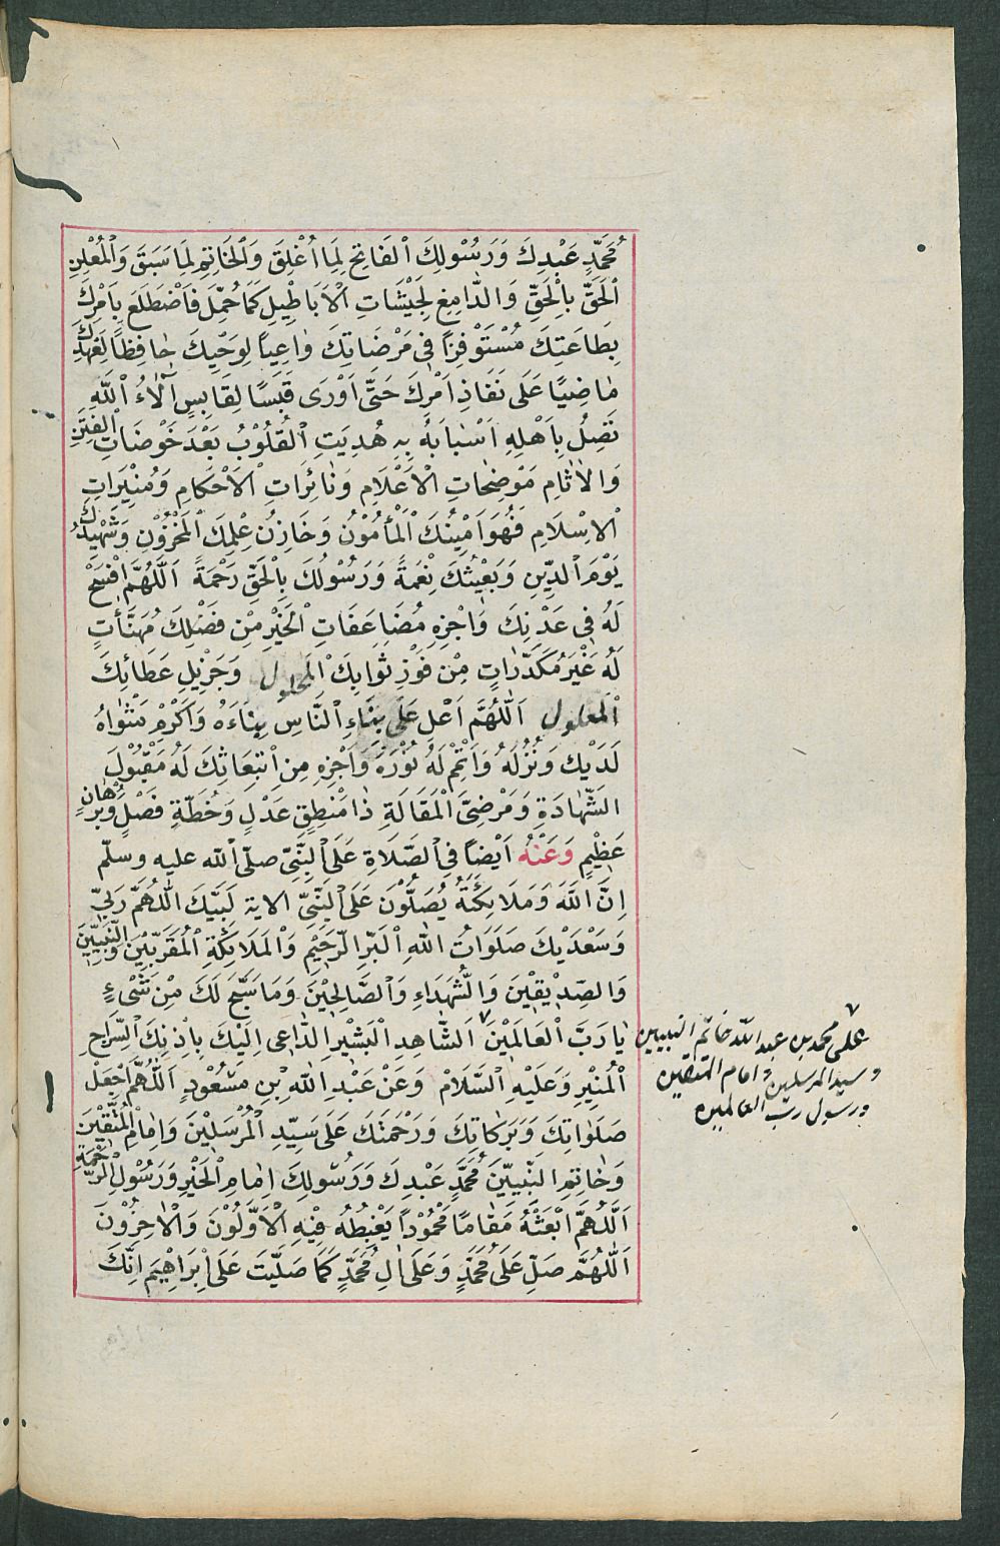 مُحَمَّدٍ عَبْدِكَ وَرَسُوْلِكَ الْفَاتِحِ لِمَا اُغْلِقَ وَالْخَاتِمِ لِمَا سَبَقَ وَالْمُعْلِنِ
الْحَقَّ بِالْحَقِّ وَالدَّامِغِ لِجَيْشَاتِ الْاَبَاطِيْلِ كَمَا حُمِّلَ فَاضْطَلَعَ بِاَمْرِكَ
بِطَاعَتِكَ مُسْتَوْفِزًا فِى مَرْضَاتِكَ وَاعِيًا لِوَحْيِكَ حَافِظًا لِعَهْدِكَ
مَاضِيًا عَلَى نَفَاذِ اَمْرِكَ حَتَّى اَوْرَى قَبَسًا لِقَابِسٍ اٰلَاءُ اللّٰهِ
تَصِلُ بِاَهْلِهِ اَسْبَابَهُ بِهِ هُدِيَتِ الْقُلُوْبُ بَعْدَ خَوْضَاتِ الْفِتَنِ
وَالْاٰثَامِ مَوْضِحَاتِ الْاَعْلَامِ وَنَائِرَاتِ الْاَحْكَامِ وَمُنِيْرَاتِ
الْاِسْلَامِ فَهُوَ اَمِيْنُكَ الْمَأْمُوْنُ وَخَازِنُ عِلْمِكَ الْمَخْزُوْنِ وَشَهِيْدُكَ
يَوْمَ الدِّيْنِ وَبَعِيْثُكَ نِعْمَةً وَرَسُوْلُكَ بِالْحَقِّ رَحْمَةً اَللّٰهُمَّ افْسَحْ
لَهُ فِى عَدْنِكَ وَاجْزِهِ مُضَاعَفَاتِ الْخَيْرِ مِنْ فَضْلِكَ مُهَنَّاٰتٍ
لَهُ غَيْرَ مُكَدَّرَاتٍ مِنْ فَوْزِ ثَوَابِكَ الْمَحْلُولِ وَجَزِيْلِ عَطَائِكَ
الْمَعْلُولِ اَللّٰهُمَّ اَعْلِ عَلَى بِنَاءِ النَّاسِ بِنَاءَهُ وَاَكْرِمْ مَثْوَاهُ
لَدَيْكَ وَنُزُلَهُ وَاَتْمِمْ لَهُ نُوْرَهُ وَاجْزِهِ مِنِ ابْتِعَاثِكَ لَهُ مَقْبُوْلَ
الشَّهَادَةِ وَمَرْضِىَّ الْمَقَالَةِ ذَا مَنْطِقٍ عَدْلٍ وَخُطَّةِ فَصْلٍ وَبُرْهَانٍ
عَظِيْمٍ وَعَنْهُ اَيْضًا فِى الصَّلَاةِ عَلَى النَّبِىِّ صلّى اللّٰه عليه وسلّم
اِنَّ اللّٰهَ وَمَلَائِكَتَهُ يُصَلُّوْنَ عَلَى النَّبِىِّ الاية لَبَّيْكَ اللّٰهُمَّ رَبِّى
وَسَعْدَيْكَ صَلَوَاتُ اللّٰهِ الْبَرِّ الرَّحِيْمِ وَالْمَلَائِكَةِ الْمُقَرَّبِيْنَ وَالنَّبِيِّيْنَ
وَالصِّدِّيْقِيْنَ وَالشُّهَدَاءِ وَالصَّالِحِيْنَ وَمَا سَبَّحَ لَكَ مِنْ شَىْءٍ
يَا رَبَّ الْعَالَمِيْنَ ٧ الشَّاهِدِ الْبَشِيْرِ الدَّاعِى اِلَيْكَ بِاِذْنِكَ السِّرَاجِ
الْمُنِيْرِ وَعَلَيْهِ السَّلَامُ وَعَنْ عَبْدِ اللّٰهِ بْنِ مَسْعُوْدٍ اَللّٰهُمَّ اجْعَلْ
صَلَوَاتِكَ وَبَرَكَاتِكَ وَرَحْمَتَكَ عَلَى سَيِّدِ الْمُرْسَلِيْنَ وَاِمَامِ الْمُتَّقِيْنَ
وَخَاتِمِ النَّبِيِّيْنَ مُحَمَّدٍ عَبْدِكَ وَرَسُوْلِكَ اِمَامِ الْخَيْرِ وَرَسُوْلِ الرَّحْمَةِ
اَللّٰهُمَّ ابْعَثْهُ مَقَامًا مَحْمُوْدًا يَغْبِطُهُ فِيْهِ الْاَوَّلُوْنَ وَالْاٰخِرُوْنَ
اَللّٰهُمَّ صَلِّ عَلَى مُحَمَّدٍ وَعَلَى اٰلِ مُحَمَّدٍ كَمَا صَلَّيْتَ عَلَى اِبْرَاهِيْمَ اِنَّكَ
٧
على محمد بن عبد اللّه خاتم النبيين
و سيد المرسلين و امام المتقين
و رسول رب العالمين